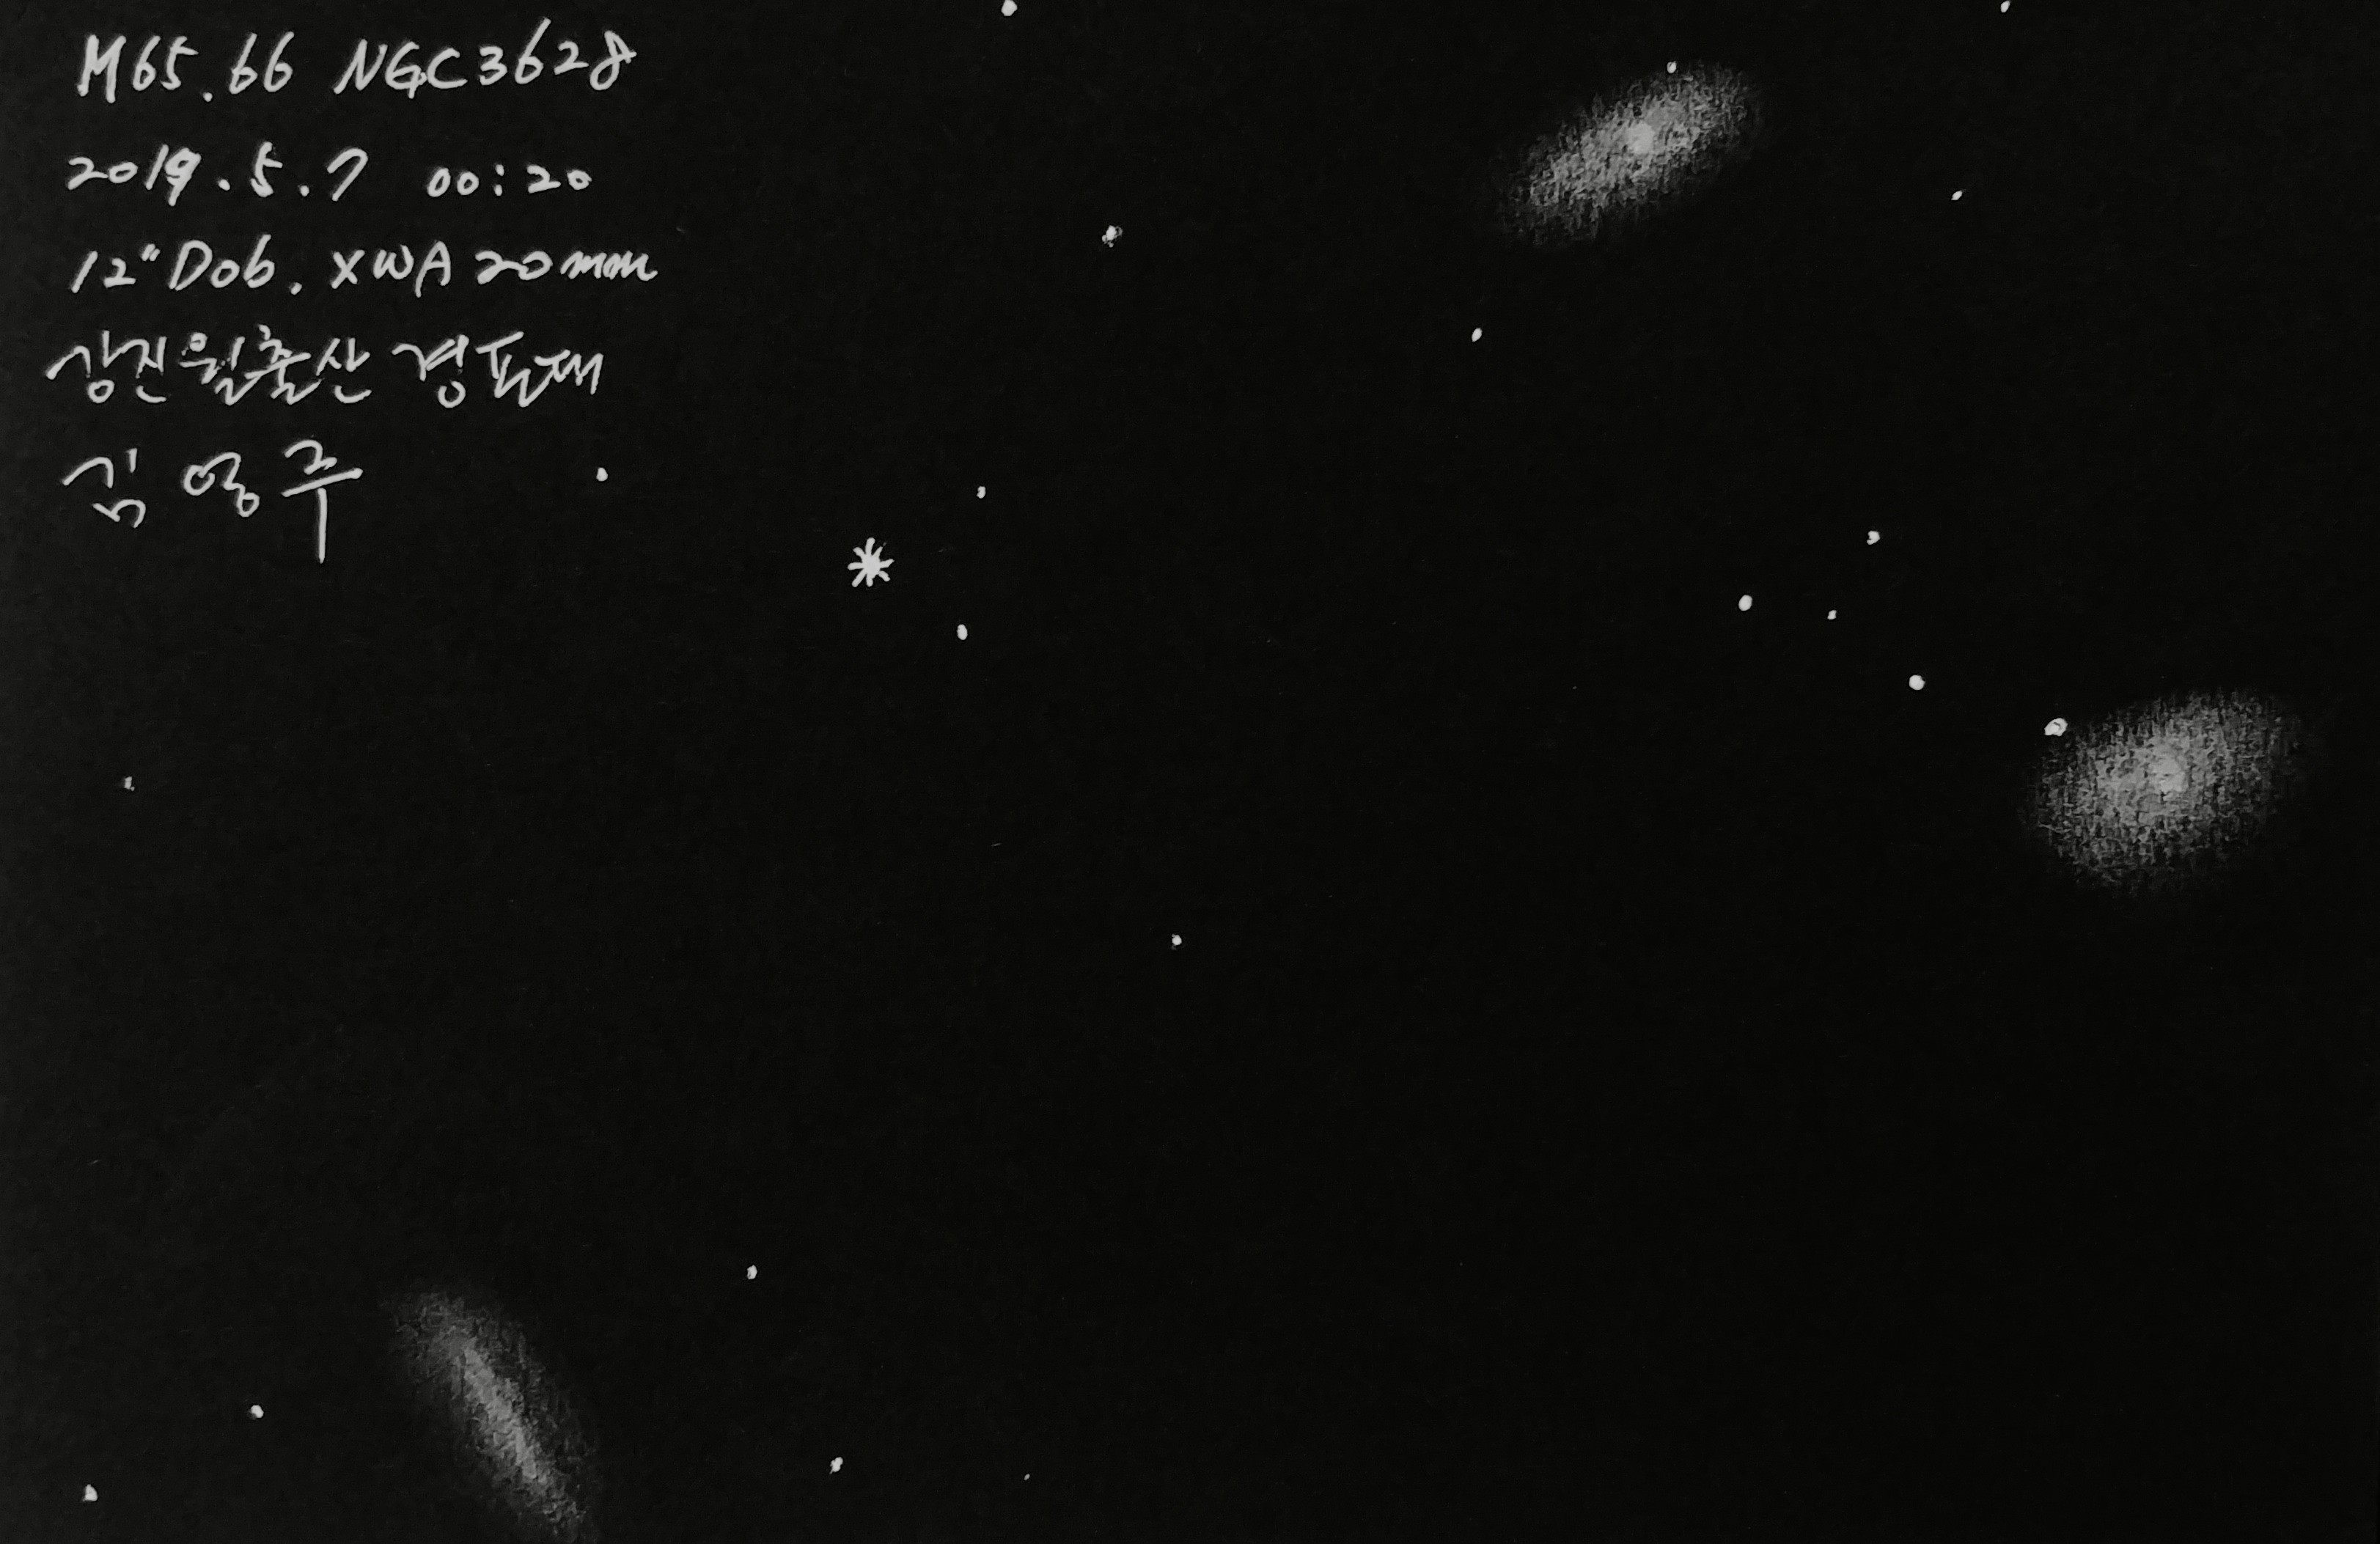 M65.66 NGC3628
2019.5.7 00:20
12" Dob. XWA 20mm
강진월출산 경포대
김영주